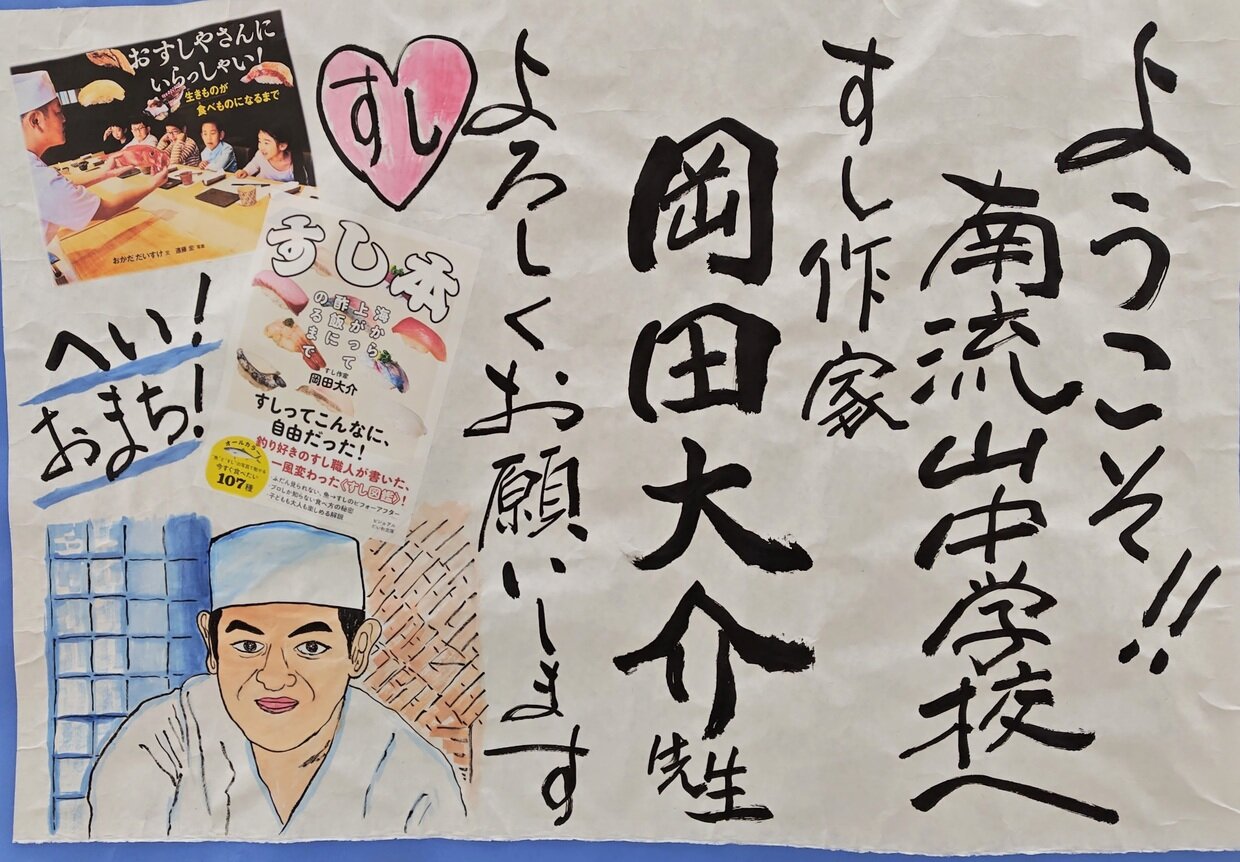 ようこそ!!
南流山中学校へ
すし作家
岡田大介先生
よろしくお願いします
すし
おすしやさんに
いらっしゃい!
生きものが
食べものになるまで
おかだ だいすけ 文 遠藤 宏 写真
へい!
おまち!
すし本
海から
上がって
酢飯に
のるまで
すし作家
岡田大介
すしってこんなに、
自由だった!
オールカラー
今すぐ食べたい
107種
釣り好きのすし職人が書いた、
一風変わった〈すし図鑑〉!
ふだん見られない、魚→すしのビフォーアフター
プロしか知らない食べ方の秘密
子どもも大人も楽しめる解説
ビジュアル
だいわ文庫